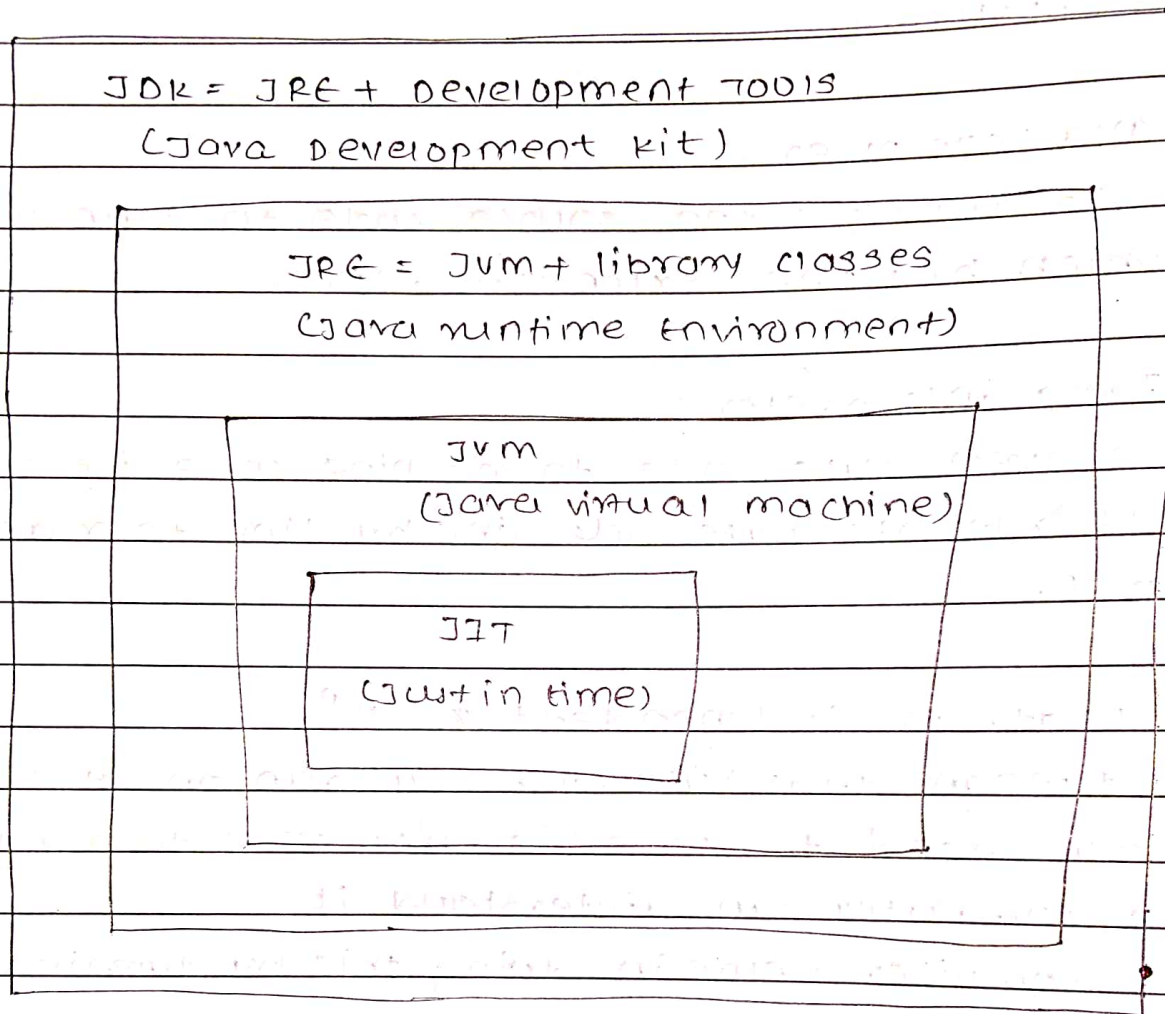 JDK = JRE + Development Tools
(Java Development kit)
JRE = JVM + library classes
(Java runtime Environment)
JVM
(Java virtual machine)
JIT
(Just in time)